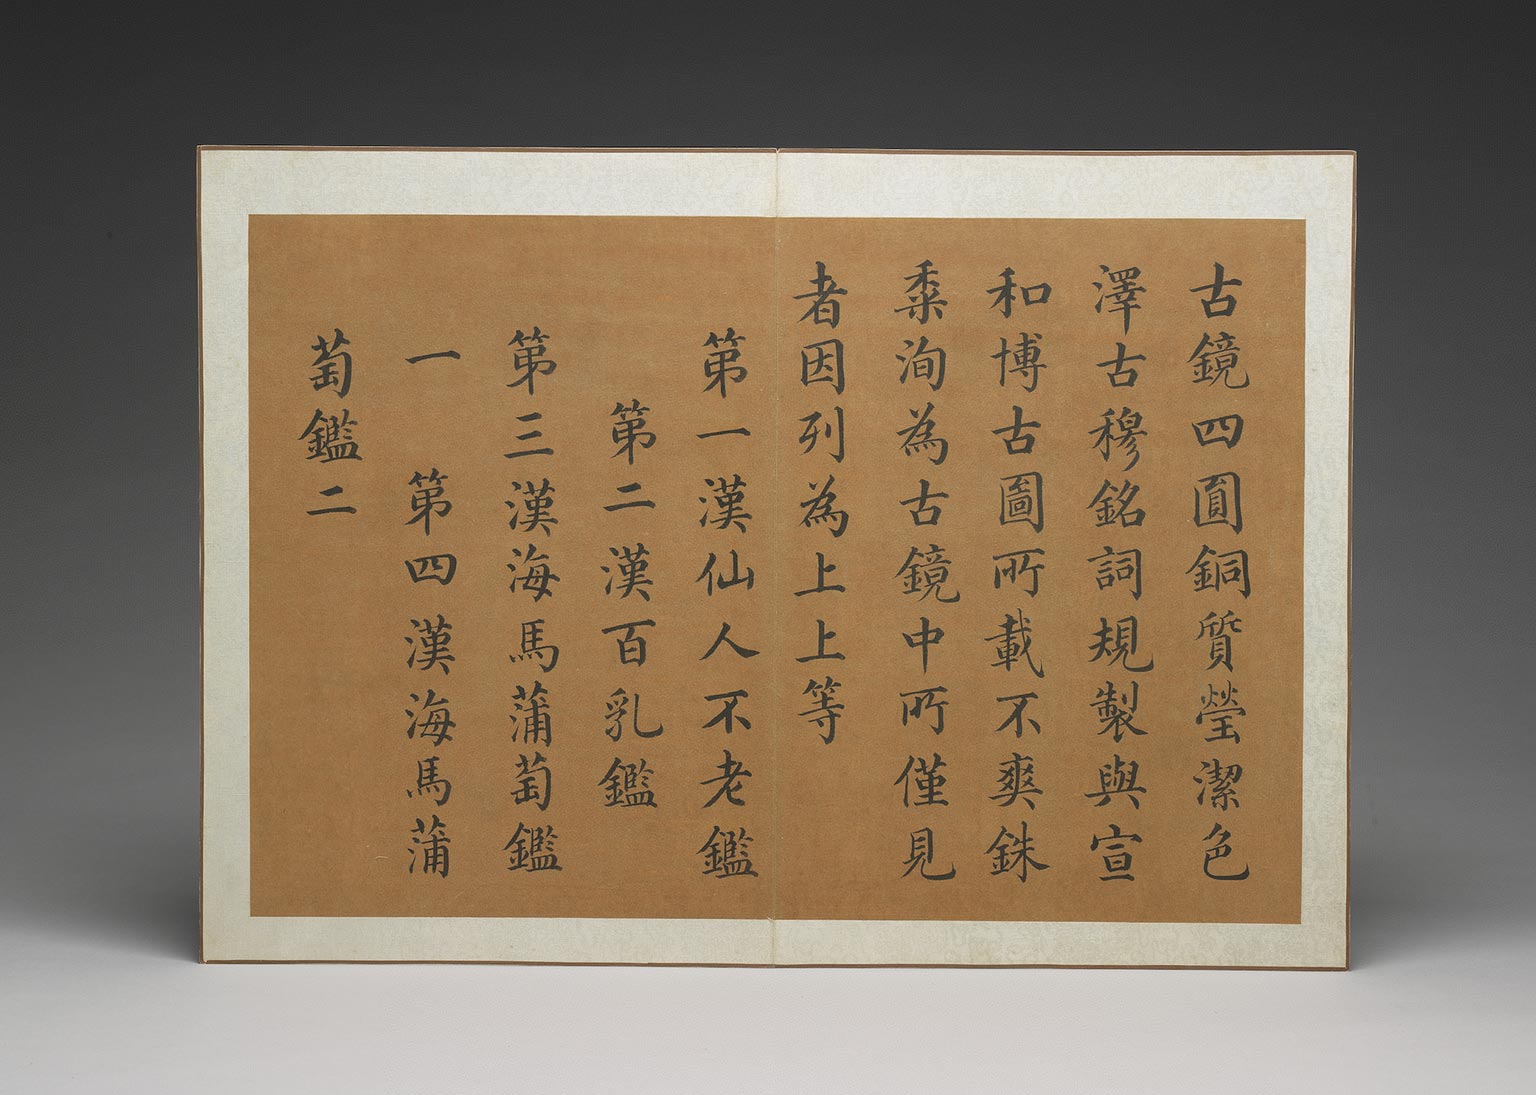 古鏡四圓銅質瑩潔色
澤古穆銘詞規製與宣
和博古圖所載不爽銖
黍洵為古鏡中所僅見
者因列為上上等
第一漢仙人不老鑑
第二漢百乳鑑
第三漢海馬蒲萄鑑
一 第四漢海馬蒲
萄鑑二